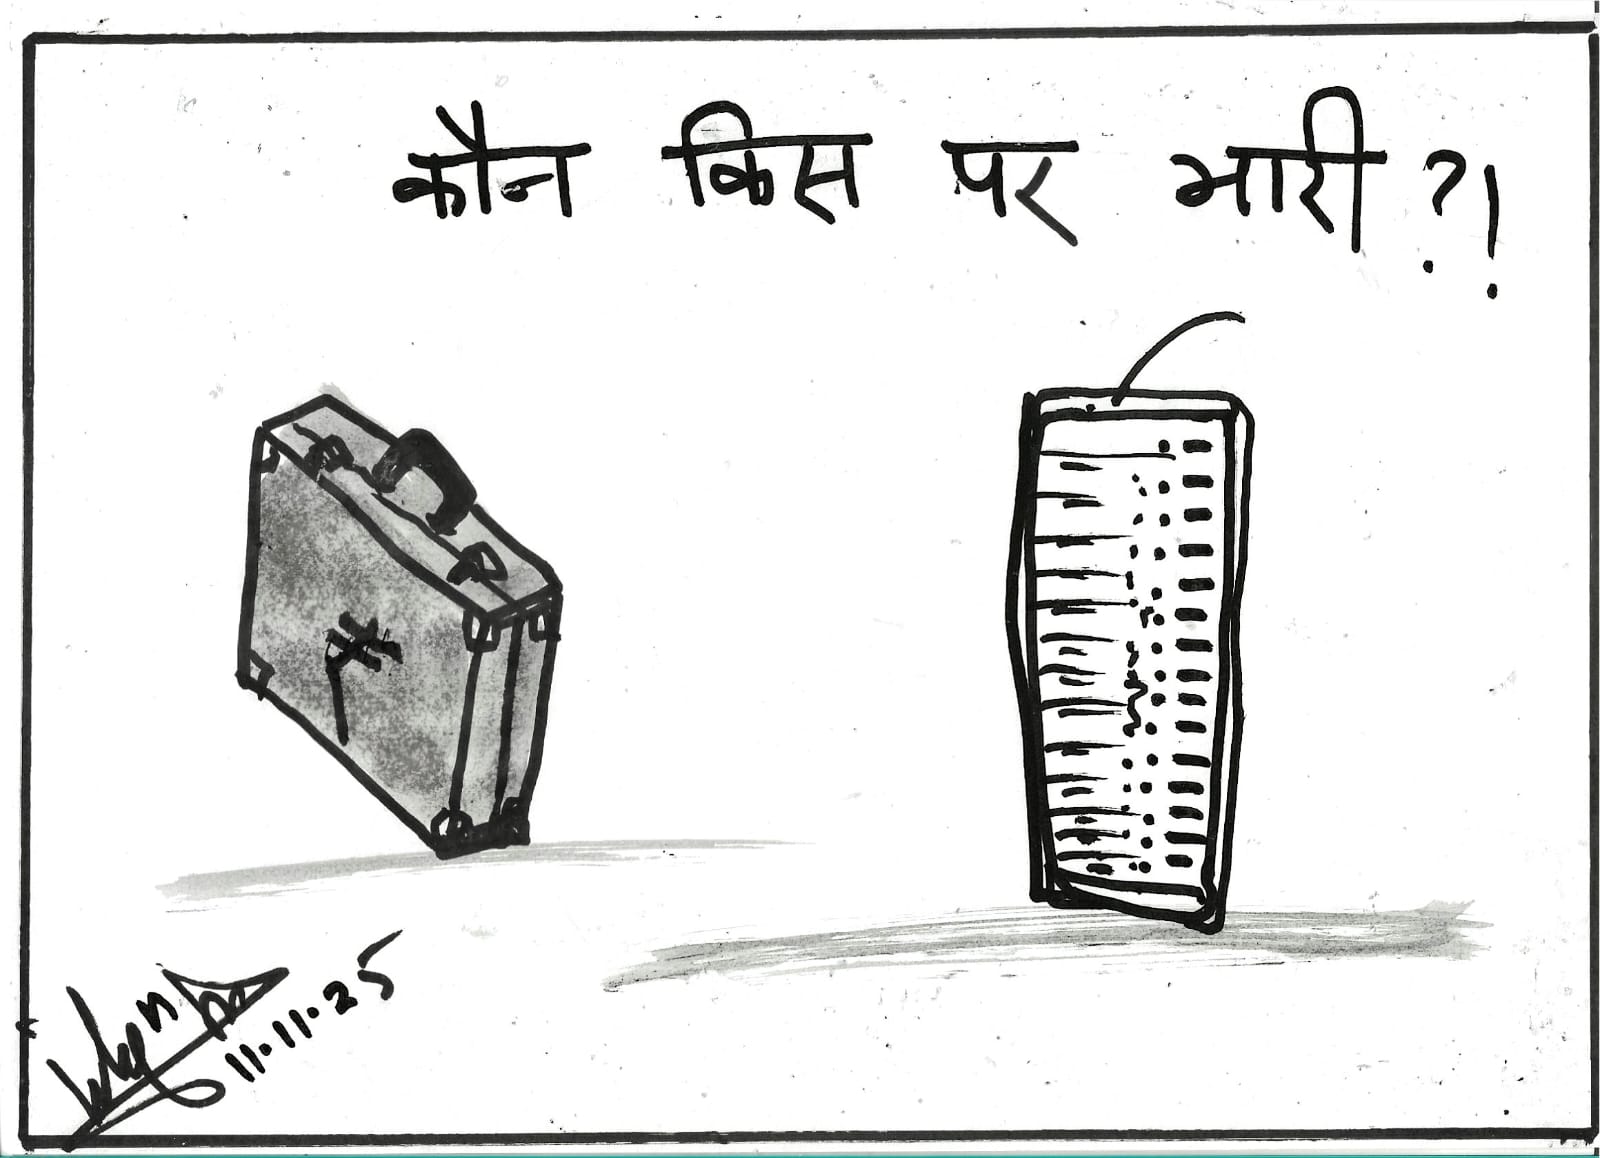 कौन किस पर भारी ?!
₹
11.11.25